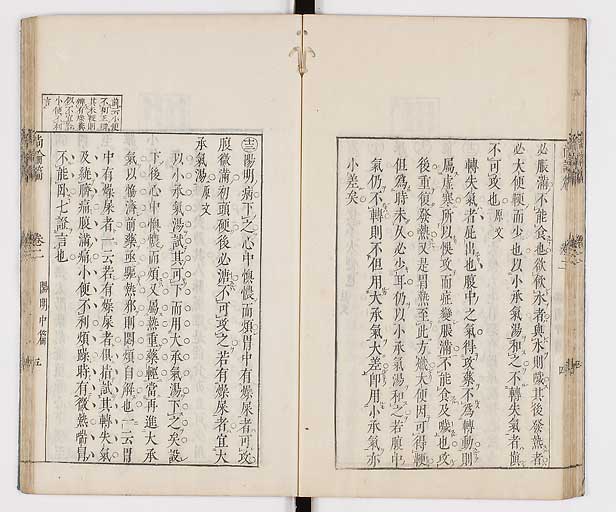 必脹滿不能食也欲飲水者與水則噦其後發熱者
必大便鞕而少也以小承氣湯和之不轉失氣者愼
不可攻也 原文
轉失氣者屁出也腹中之氣得攻藥不爲轉動則
屬虛寒所以悞攻而症變脹滿不能食及噦也攻
後重復發熱又是胃熱至此方熾大便因可得鞕
但爲時未久必少耳仍以小承氣湯和之若腹中
氣仍不轉則不但用大承氣大差卽用小承氣亦
小差矣
陽明病下之心中懊憹而煩胃中有燥屎者可攻
腹微滿初頭硬後必溏不可攻之若有燥屎者宜大
承氣湯 原文
以小承氣湯試其可下而用大承氣湯下之矣設
下後心中懊憹而煩又屬熱重藥輕當再進大承
氣以
前藥亟驅熱邪則悶煩自解也一云胃
中有燥屎者一云若有燥屎者俱指試其轉失氣
及繞臍痛腹滿痛小便不利煩躁時有微熱喘冒
不能臥七証言也
卷二
陽明中篇
五